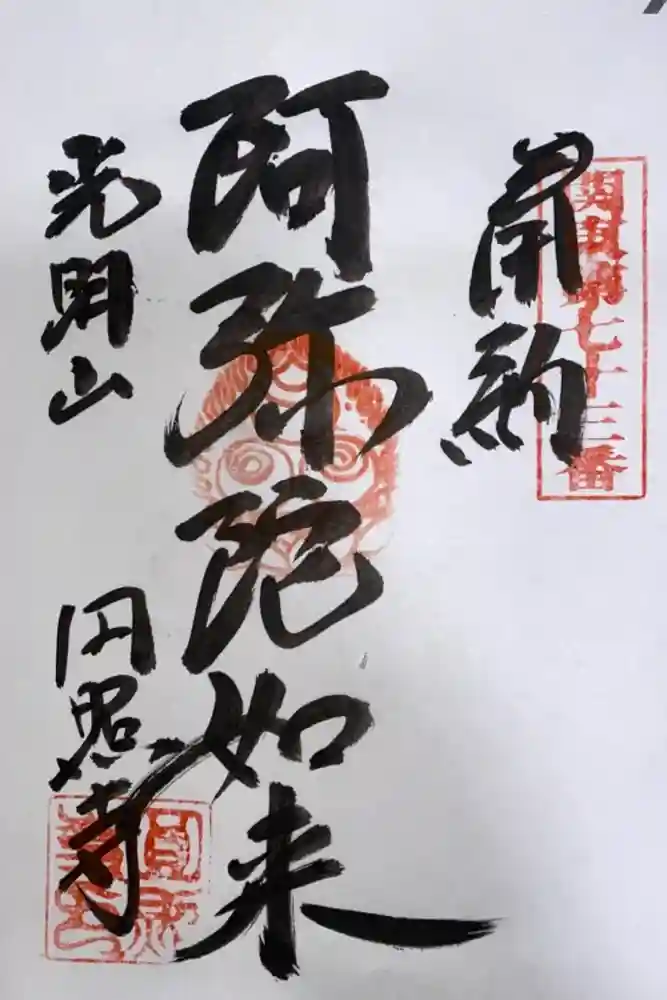 関東第七十三番
奉納
阿弥陀如来
光明山
円照寺